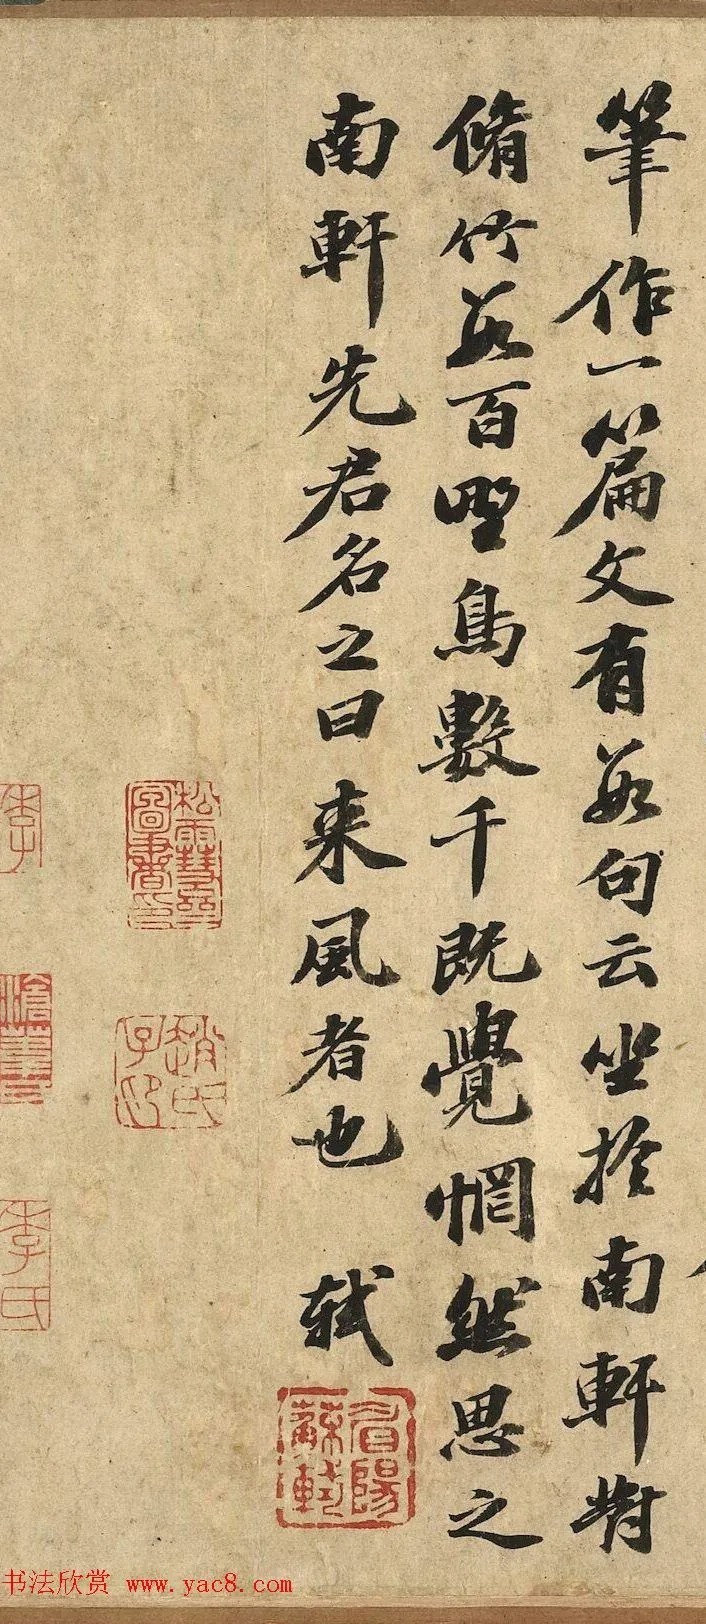 筆作一篇文有數句云坐於南軒對
脩竹數百野鳥數千既覺惘然思之
南軒先君名之曰来風者也 軾
眉陽蘇軾
松雪齋圖書印
趙氏子昂
李
李氏
书法欣赏 www.yac8.com